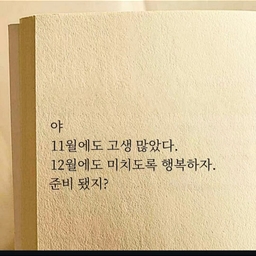 야
11월에도 고생 많았다.
12월에도 미치도록 행복하자.
준비 됐지?